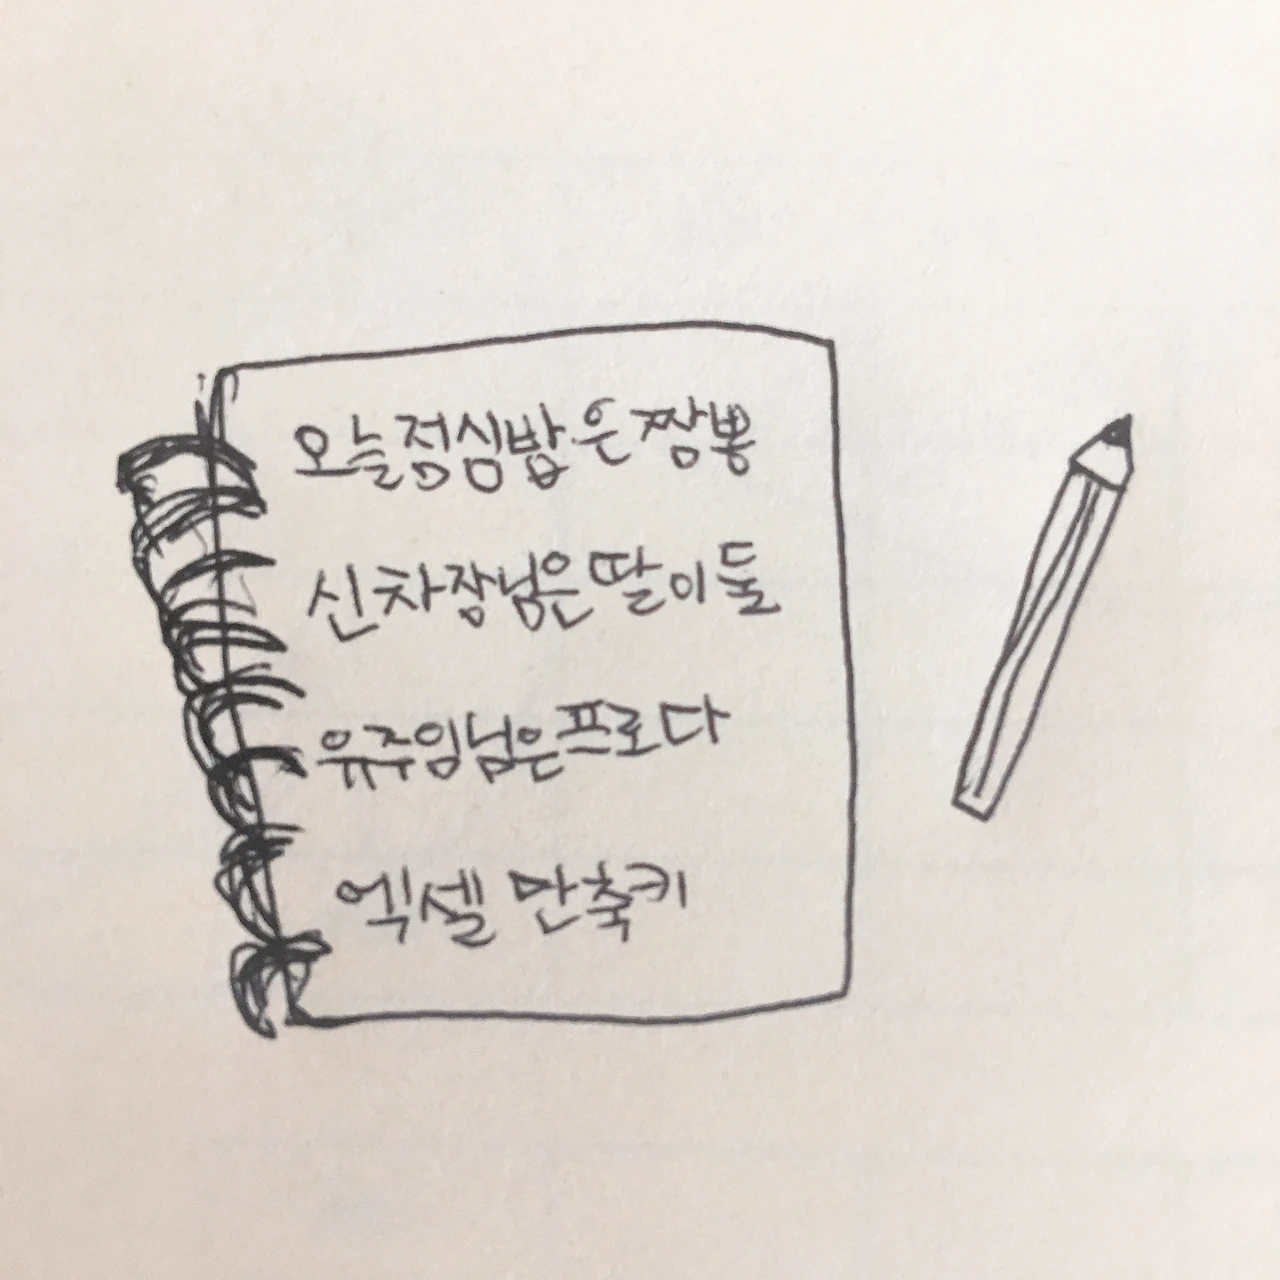 오늘점심밥은 짬뽕
신차장님은 딸이둘
유주임님은 프로다
엑셀 만축키